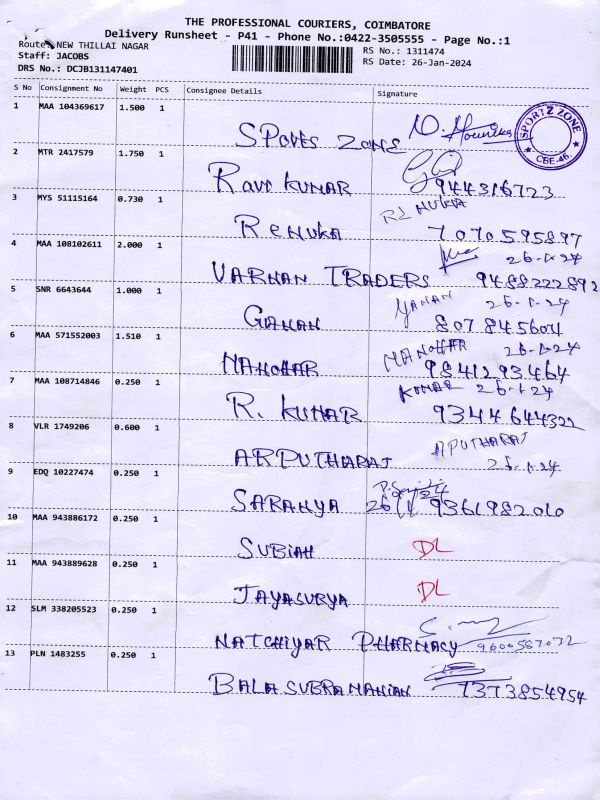 THE PROFESSIONAL COURIERS, COIMBATORE
Delivery Runsheet - P41 - Phone No.:0422-3505555 - Page No.:1
Route: NEW THILLAI NAGAR
RS No.: 1311474
Staff: JACOBS
RS Date: 26-Jan-2024
DRS No.: DCJB131147401
S No Consignment No Weight PCS Consignee Details Signature
1 MAA 104369617 1.500 1
SPORTS ZONE
SPORTZ ZONE
CBE-46.
2 MTR 2417579 1.750 1
Ravi KUMAR 944316723
3 MYS 51115164 0.730 1
RENUKA
RENUKA 7070595897
26-1-24
4 MAA 108102611 2.000 1
VARMAN TRADERS 9488222892
26-1-24
5 SNR 6643644 1.000 1
GANAN 807845604
26-1-24
6 MAA 571552003 1.510 1
MANOHAR
MANOHAR 9841293464
KUMAR 26-1-24
7 MAA 108714846 0.250 1
R. KUMAR 9344644322
8 VLR 1749206 0.600 1
APUTHARAJ
ARPUTHARAJ 25-1-24
9 EDQ 10227474 0.250 1
SARANYA 26/1 9361982010
10 MAA 943886172 0.250 1
SUBIAH DL
11 MAA 943889628 0.250 1
JAYASURYA DL
12 SLM 338205523 0.250 1
NATCHIYAR PHARMACY 9600587072
13 PLN 1483255 0.250 1
BALASUBRAMANIAN 7373854954